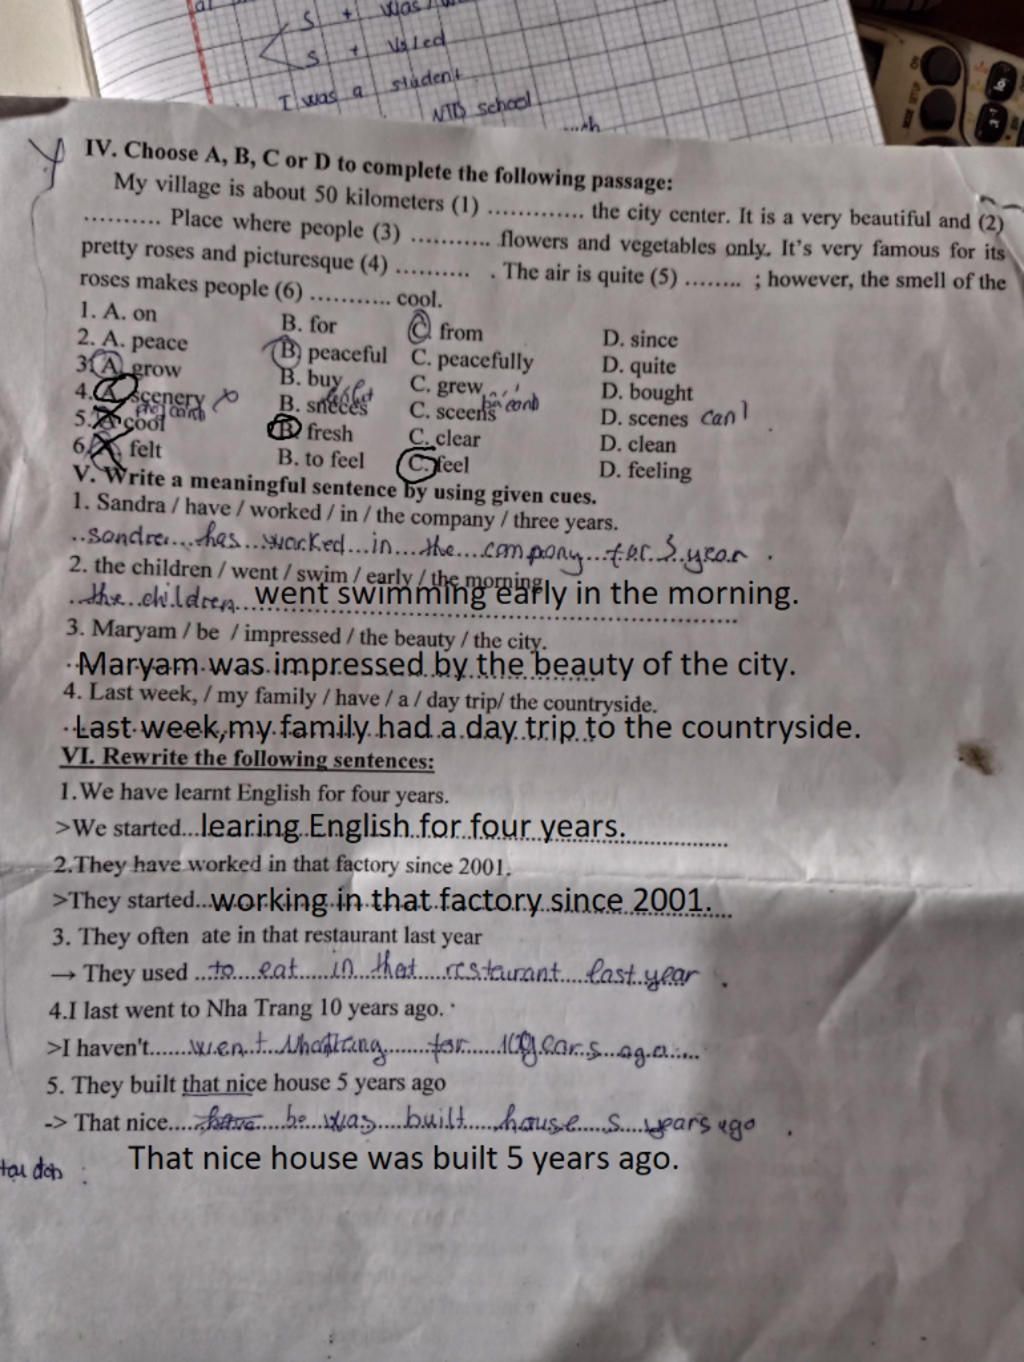 S + was
S + Ved
I was a student
NTD school
IV. Choose A, B, C or D to complete the following passage:
My village is about 50 kilometers (1) ............. the city center. It is a very beautiful and (2)
.......... Place where people (3) .......... flowers and vegetables only. It's very famous for its
pretty roses and picturesque (4) .......... . The air is quite (5) ........ ; however, the smell of the
roses makes people (6) ........... cool.
1. A. on B. for C. from D. since
2. A. peace B. peaceful C. peacefully D. quite
3. A. grow B. buy C. grew D. bought
4. A. scenery B. sneces C. sceens D. scenes
5. A. cool B. fresh C. clear D. clean
6. A. felt B. to feel C. feel D. feeling
V. Write a meaningful sentence by using given cues.
1. Sandra / have / worked / in / the company / three years.
sandra has worked in the company for 3 year.
2. the children / went / swim / early / the morning
the children went swimming early in the morning.
3. Maryam / be / impressed / the beauty / the city.
Maryam was impressed by the beauty of the city.
4. Last week, / my family / have / a / day trip/ the countryside.
Last week,my family had a day trip to the countryside.
VI. Rewrite the following sentences:
1.We have learnt English for four years.
>We started...learing English for four years.
2.They have worked in that factory since 2001.
>They started...working in that factory since 2001.
3. They often ate in that restaurant last year
→ They used to eat in that restaurant last year.
4.I last went to Nha Trang 10 years ago.
>I haven't......went Nhatrang for 10 years ago....
5. They built that nice house 5 years ago
-> That nice.... have be was built house 5 years ago.
That nice house was built 5 years ago.